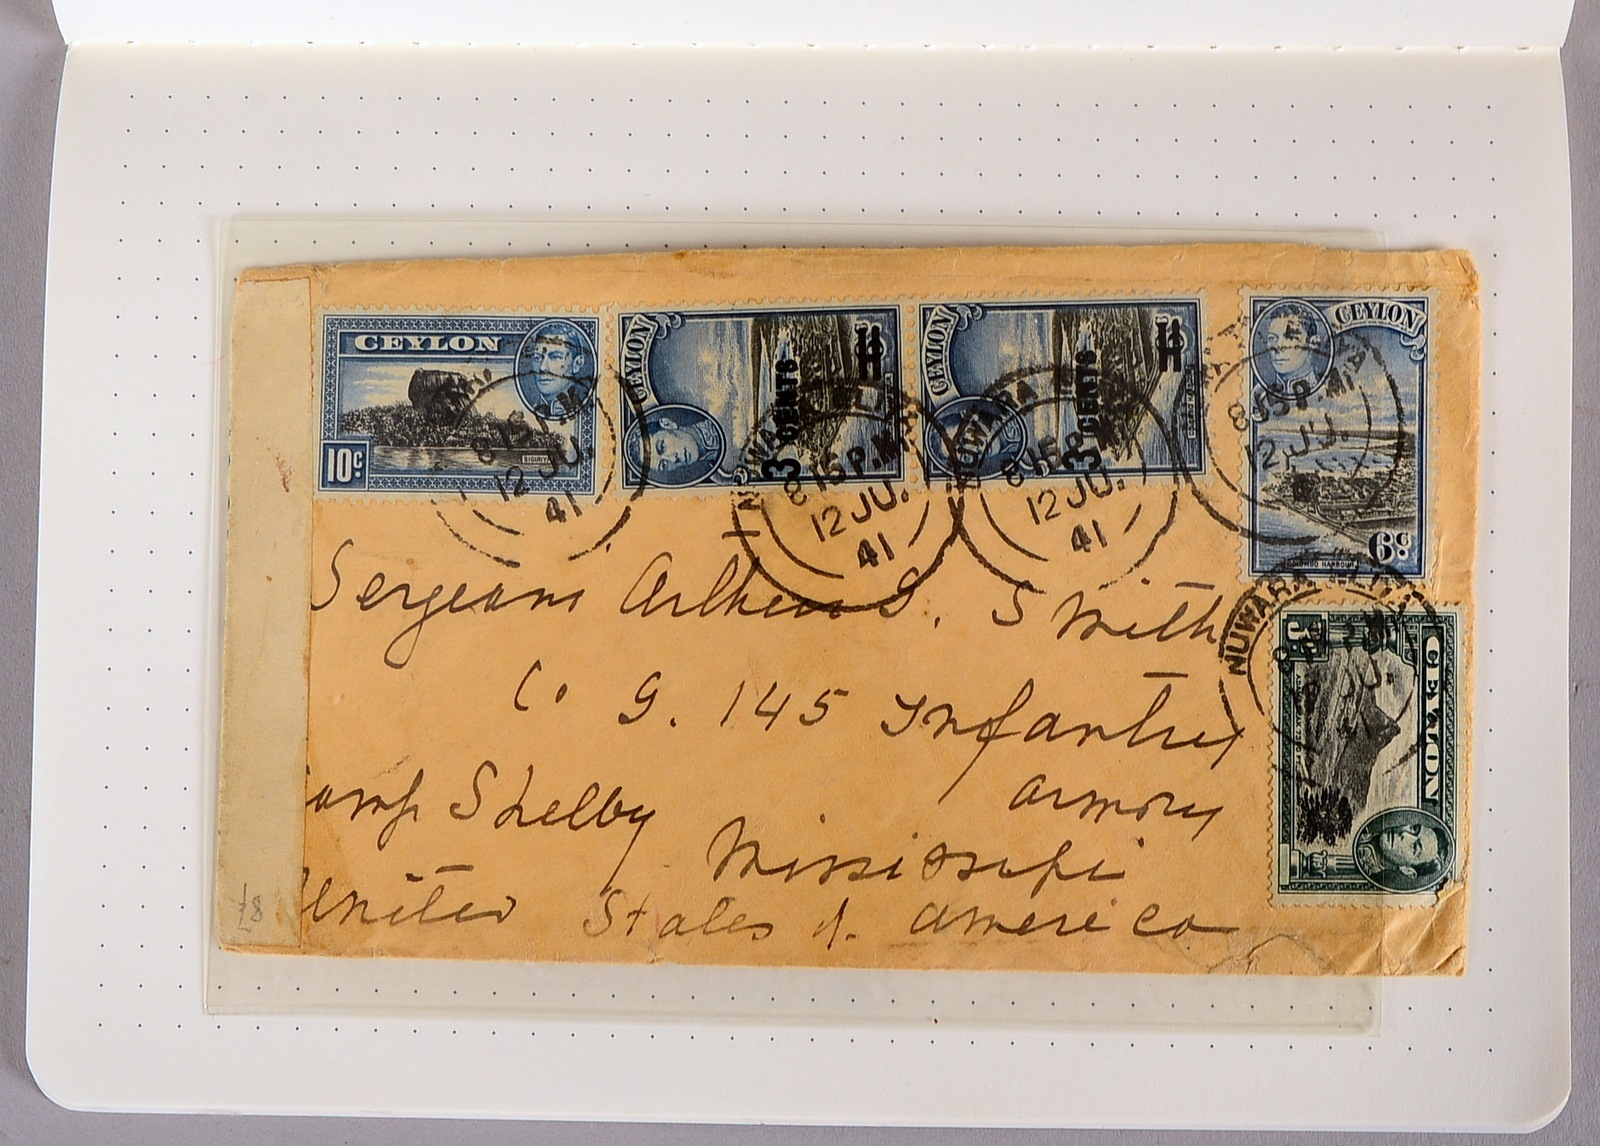 CEYLON
10c
SIGIRIYA
CEYLON
3 CENTS
CEYLON
3 CENTS
CEYLON
6c
COLOMBO HARBOUR
CEYLON
8 15 P.M
12 JU.
41
NUWARA
8 15 P.M
12 JU.
41
NUWARA
8 15 P
12 JU.
41
8 15 P.M
12 JU.
NUWARA
JU.
Sergeant Arthur S. Smith
Co G. 145 Infantry
armory
amp Shelby
Mississipi
United States of America
£8